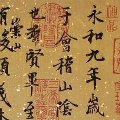 永和九年歲
于會稽山陰
也羣賢畢
有崇山峻領茂